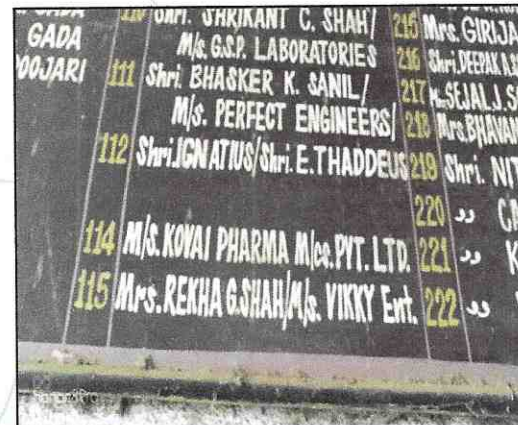 GADA
POOJARI
110 Shri. SHRIKANT C. SHAH/
M/s. G.S.P. LABORATORIES
111 Shri. BHASKER K. SANIL/
M/s. PERFECT ENGINEERS/
112 Shri. IGNATIUS/Shri. E. THADDEUS
114 M/s. KOVAI PHARMA M/cs. PVT. LTD.
115 Mrs. REKHA G. SHAH/M/s. VIKKY Ent.
215 Mrs. GIRIJA
216 Shri. DEEPAK
217 SEJAL. J.
218 Mrs. BHAVAN
219 Shri. NIT
220 ,, CA
221 ,, K
222 ,,